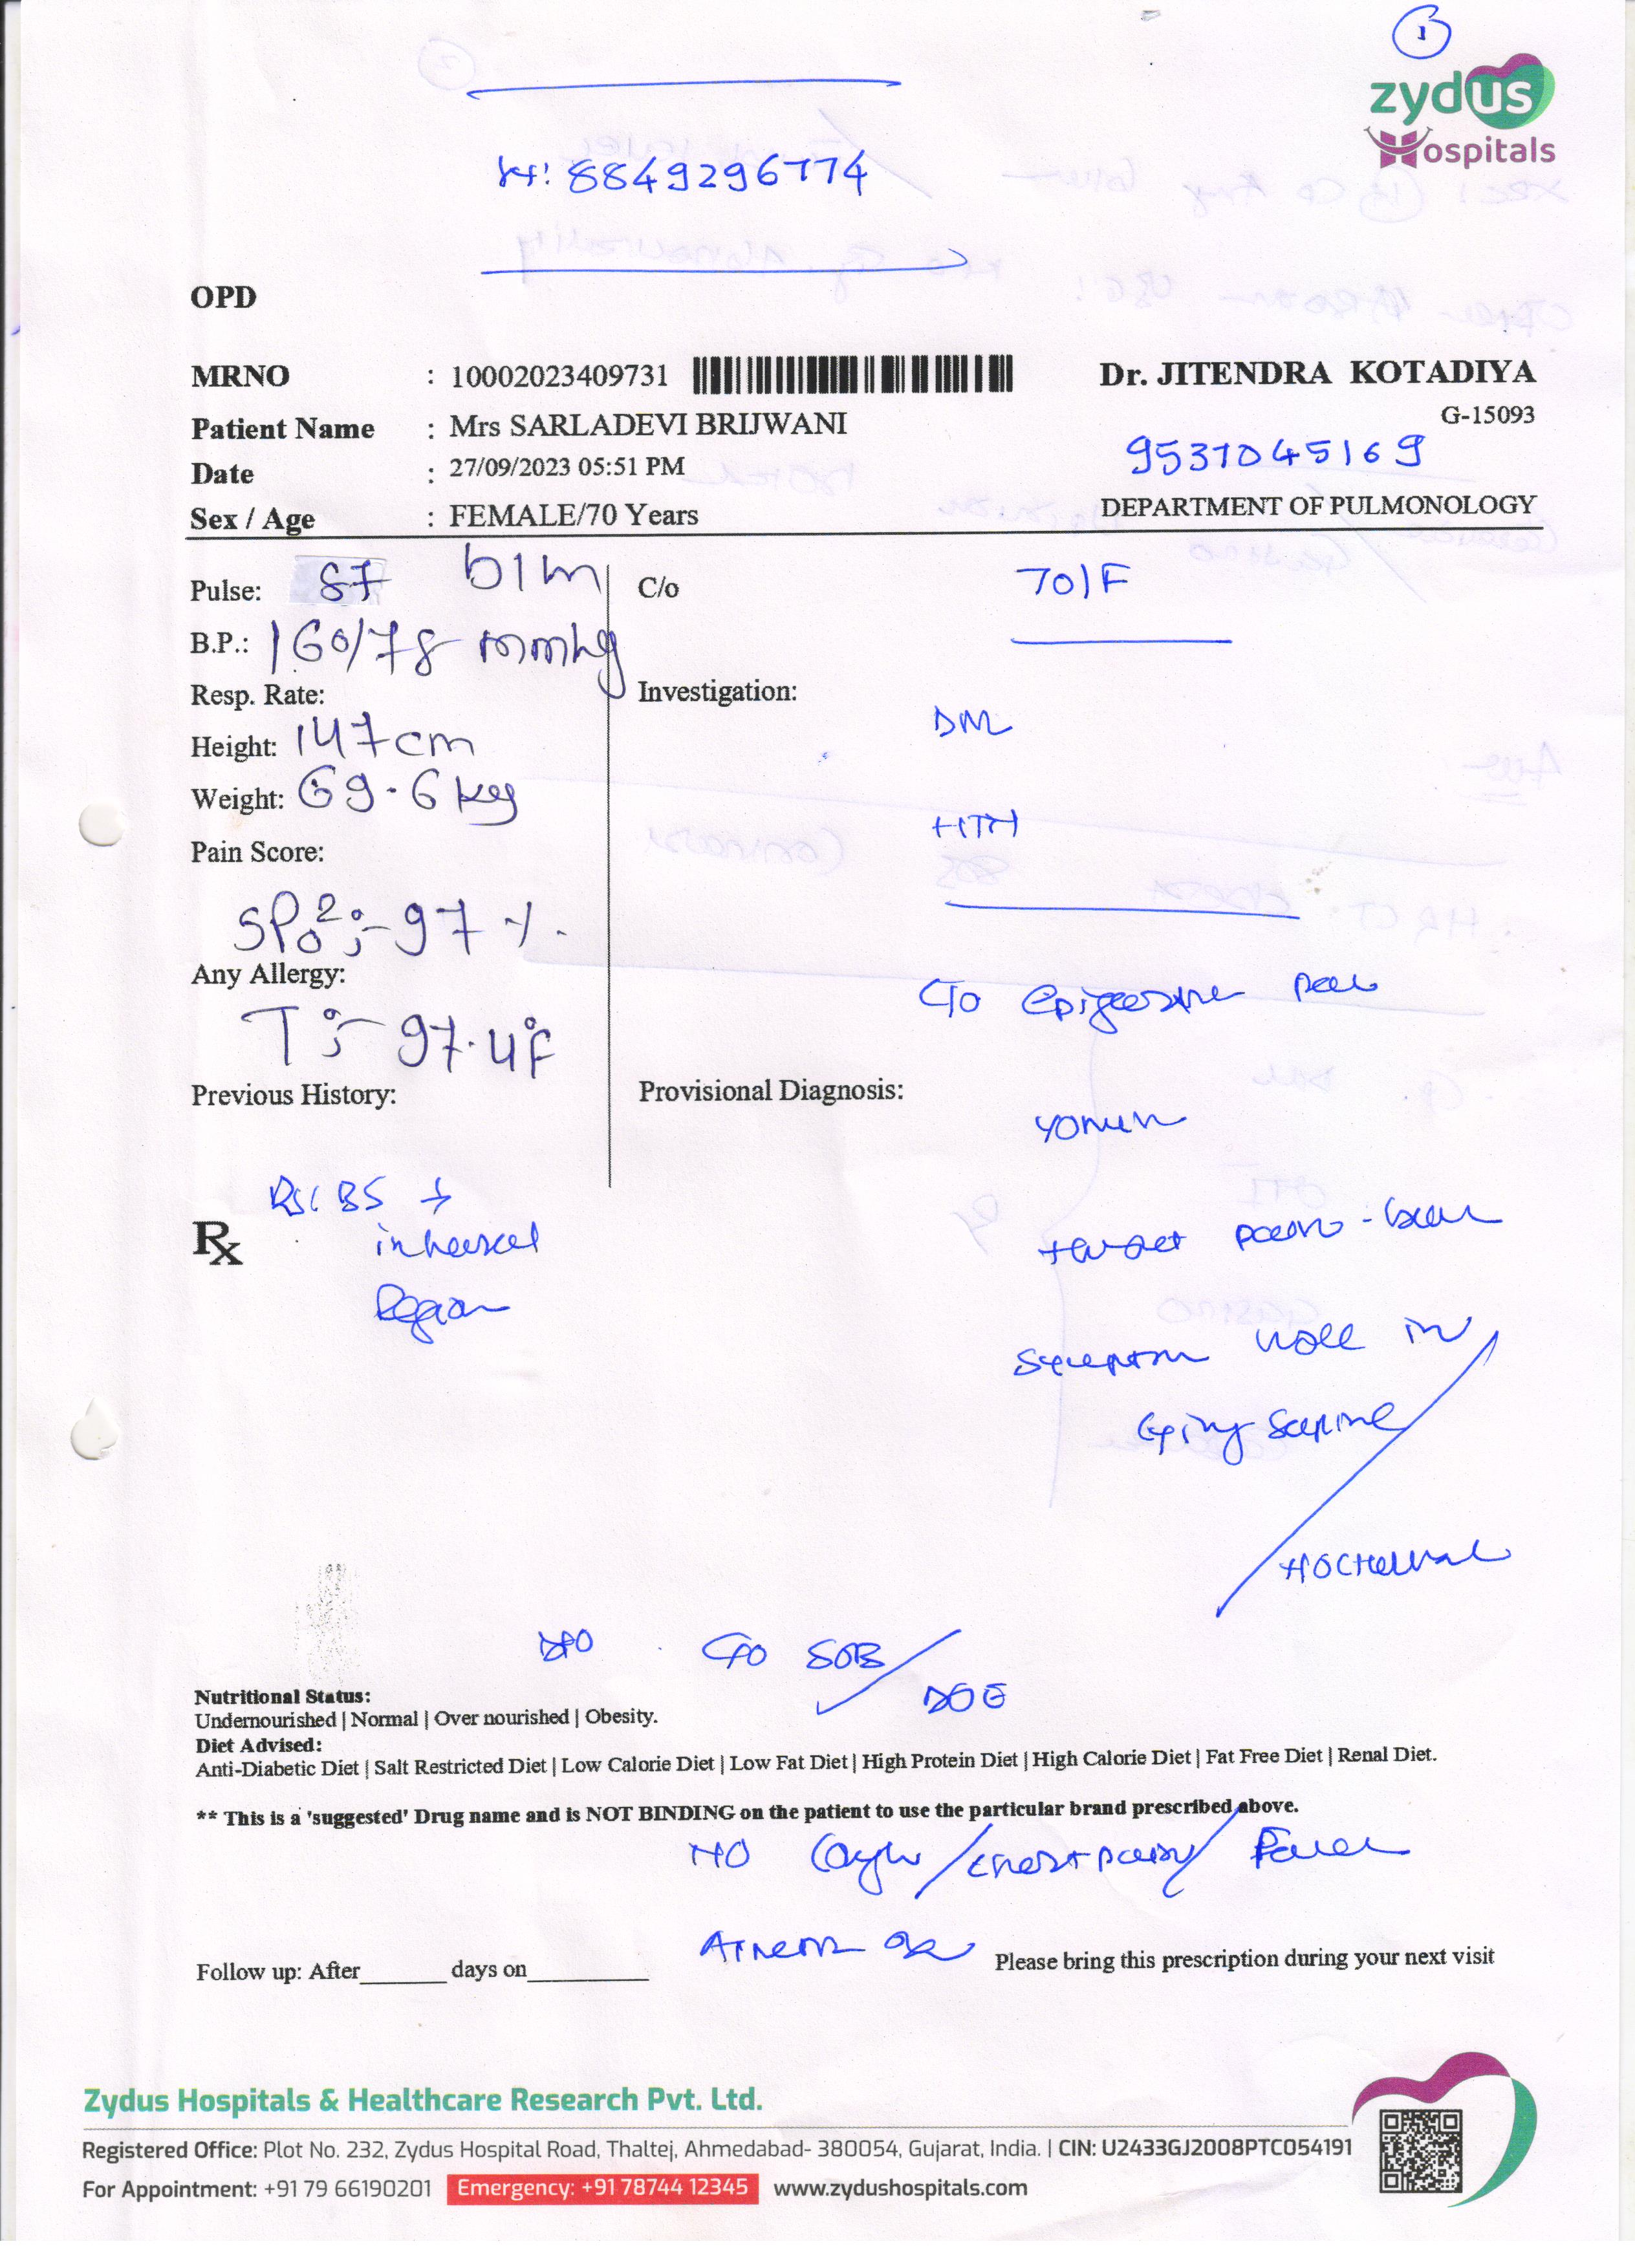 1
zydus
Hospitals
: 8849296774
OPD
MRNO : 10002023409731 Dr. JITENDRA KOTADIYA
G-15093
Patient Name : Mrs SARLADEVI BRIJWANI
9537045169
Date : 27/09/2023 05:51 PM
Sex / Age : FEMALE/70 Years DEPARTMENT OF PULMONOLOGY
Pulse: 87 b/m C/o 70/F
B.P.: 160/78 mmhg
Resp. Rate: Investigation:
DM
Height: 147 cm
Weight: 69.6 kg
HTN
Pain Score:
SPO2:- 97 %.
Any Allergy:
C/o
T:- 97.4°F
Previous History: Provisional Diagnosis:
RS/ BS
Rx
Region
in
C/o SOB/
DOE
Nutritional Status:
Undernourished | Normal | Over nourished | Obesity.
Diet Advised:
Anti-Diabetic Diet | Salt Restricted Diet | Low Calorie Diet | Low Fat Diet | High Protein Diet | High Calorie Diet | Fat Free Diet | Renal Diet.
** This is a 'suggested' Drug name and is NOT BINDING on the patient to use the particular brand prescribed above.
NO Cough / chest pain / Fever
Follow up: After______ days on________ Please bring this prescription during your next visit
Zydus Hospitals & Healthcare Research Pvt. Ltd.
Registered Office: Plot No. 232, Zydus Hospital Road, Thaltej, Ahmedabad- 380054, Gujarat, India. | CIN: U2433GJ2008PTC054191
For Appointment: +91 79 66190201 Emergency: +91 78744 12345 www.zydushospitals.com